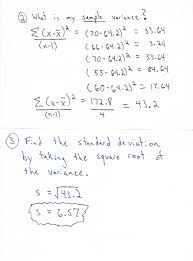 ② What is my sample variance?
Σ(x-x̄)² = (70-64.2)² = 33.64
(n-1) (66-64.2)² = 3.24
(70-64.2)² = 33.64
(55-64.2)² = 84.64
(60-64.2)² = 17.64
Σ(x-x̄)² = 172.8 = 43.2
(n-1) 4
③ Find the standard deviation
by taking the square root of
the variance.
s = √43.2
s = 6.57